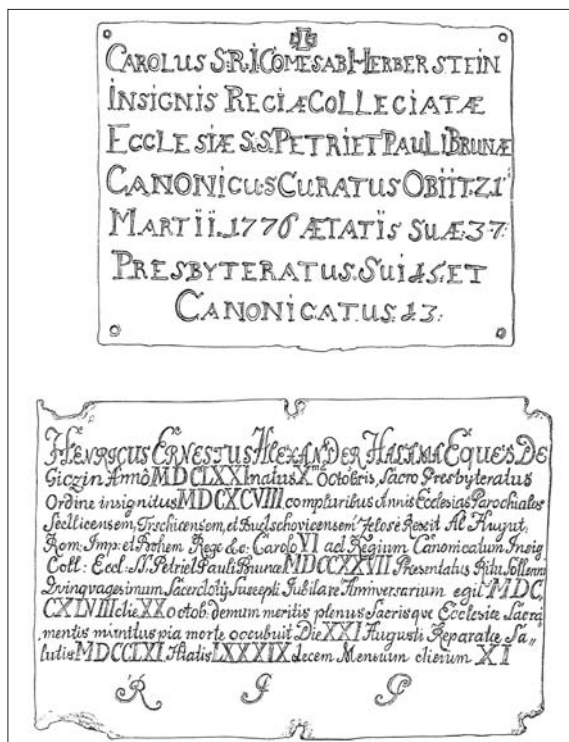 CAROLUS S:R:I COMES AB HERBERSTEIN
INSIGNIS RECIÆ COLLECIATÆ
ECCLESIÆ S:S:PETRI ET PAULI BRUNÆ
CANONICUS CURATUS OBIIT.21
MARTII.1776 ÆTATIS SUÆ:37:
PRESBYTERATUS.SUI 15:ET
CANONICATUS:13:
HENRICUS ERNESTUS ALEXANDER HALAMA EQUES DE
Giczin Annô MDCLXXI natus X Octobris, Sacro Presbyteratus
Ordine insignitus MDCXCVIII compluribus Annis Ecclesias Parochiales
et Zelosè Rexit Ab August:
Rom: Imp: et Bohem Rege &c: Carolo VI ad Regium Canonicatum Insig
Coll: Eccl: SS Petri et Pauli Brunæ MDCCXXVII Præsentatus Ritu Sollenni
Qvinqvagesimum Sacerdotij Suscepti Jubilare Anniversarium egit MDC,
CXLVIII die XX octob: demum meritis plenus Sacrisque Ecclesiæ Sacra
mentis munitus pia morte occubuit Die XXI Augusti Reparatæ Sa„
lutis MDCCLXI. Ætatis LXXXIX decem Mensium dierum XI
R I P